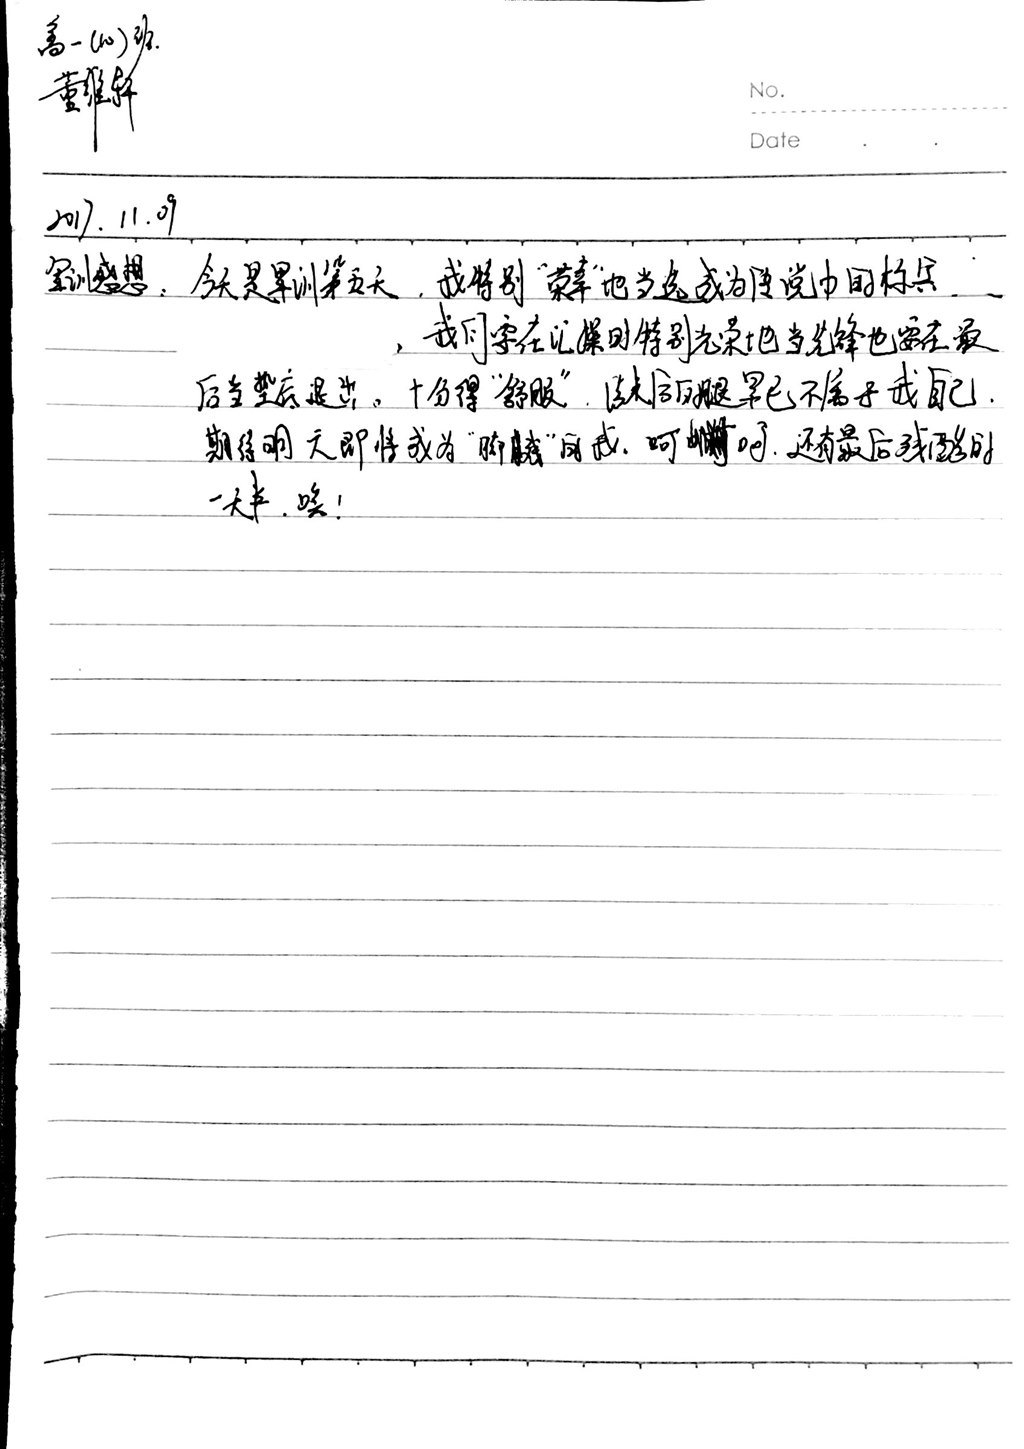 高一(10)班.
董雅轩
No.
Date . .
2017.11.09
军训感想: 今天是军训第五天,我特别"荣幸"地当选成为传说中的标兵
,我们要在汇操时特别光荣地当先锋也要在最
后当垫底退出。十分得"舒服",结束后的腿早已不属于我自己.
期待明天即将成为"脚残"的我.呵呵.还有最后残酷的
一天半.唉!